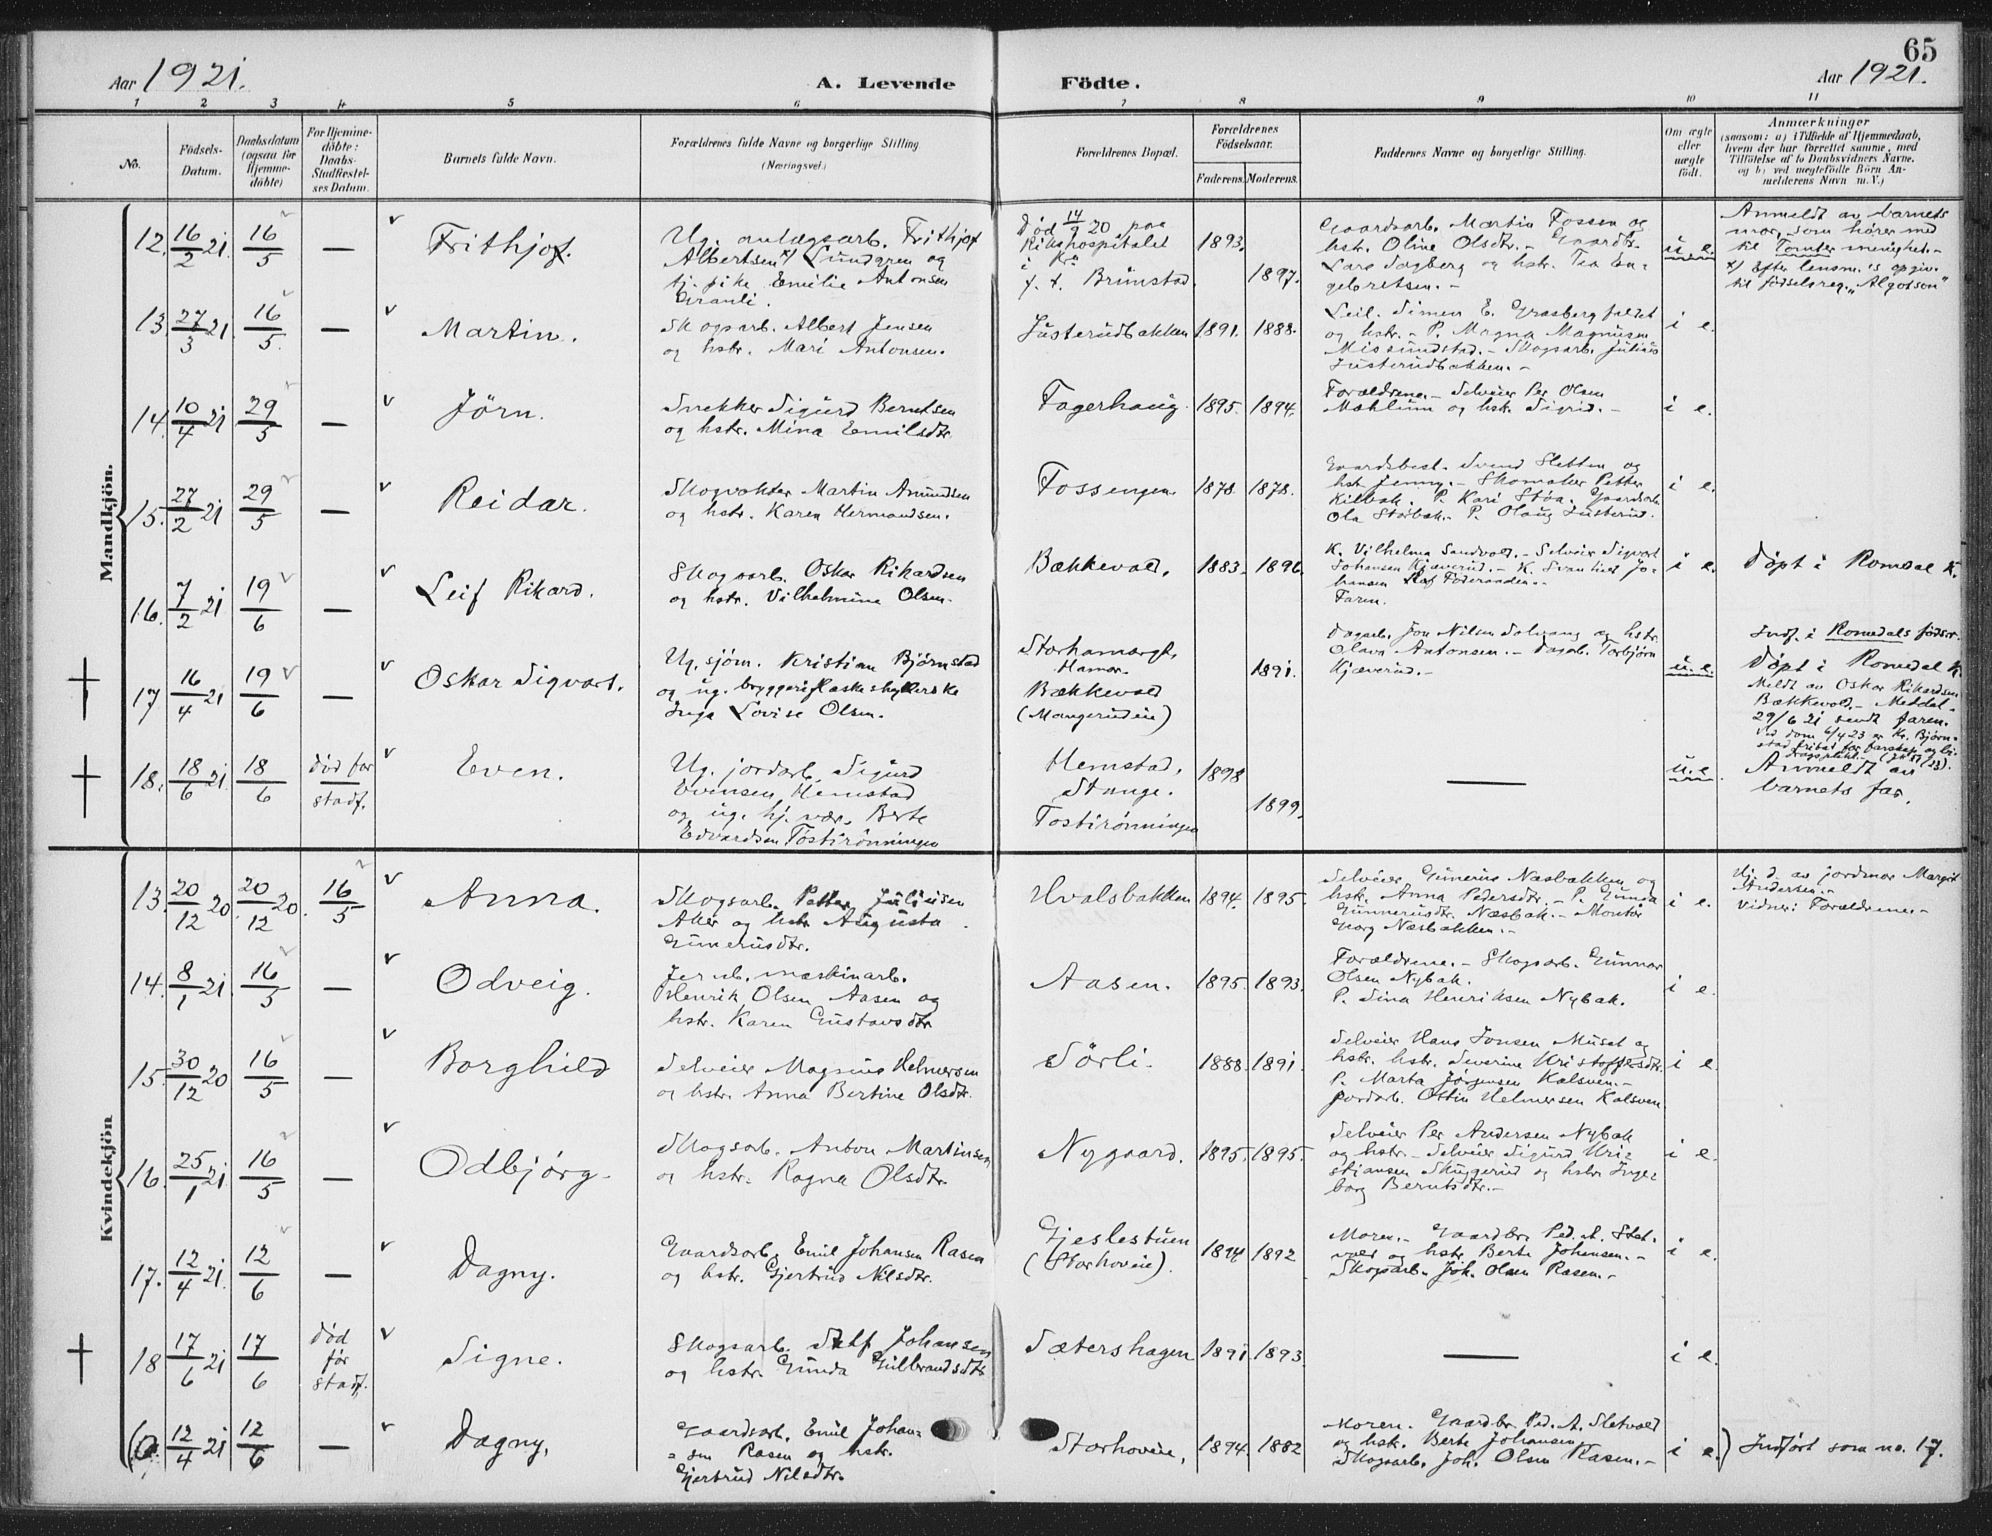 65
Aar 1921.
A. Levende Födte.
Aar 1921.
1 2 3 4 5 6 7 8 9 10 11
No.
Födsels-
Datum.
Daabsdatum
(ogsaa for
Hjemme-
döbte)
For Hjemme-
döbte:
Daabs-
Stadfæstel-
ses Datum.
Barnets fulde Navn.
Forældrenes fulde Navne og borgerlige Stilling
(Næringsvei.)
Forældrenes Bopæl.
Forældrenes
Födselsaar.
Faderens. Moderens.
Faddernes Navne og borgerlige Stilling.
Om ægte
eller
uægte
født.
Anmærkninger
(saasom: a) i Tilfælde af Hjemmedaab,
hvem der har forrettet samme, med
Tilföielse af to Daabsvidners Navne.
og b) ved uægtefödte Börn An-
melderens Navn m. V.)
Mandkjön.
12. 16/2 21. 16/5 — Frithjof.
Ug. anlægsarb. Frithjof
Albertsen x) Lundgren og
tj. pike Emilie Antonsen
Granli.
Død 14/9 20 paa
Rikshospitalet
i Kra
f. t. Brunstad.
1893. 1897.
Gaardsarb. Martin Fossen og
hstr. Oline Olsdtr. - Gaardbr.
Lars Sagberg og hstr. Tea En-
gebretsen. -
u. e.
Anmeldt av barnets
mor, som hører med
til Tomter menighet. -
x) Efter lensm.'s opgiv.
til fødselsreg. "Algotson"
13. 27/3 21. 16/5 — Martin.
Skogsarb. Albert Jensen
og hstr. Mari Antonsen.
Justerudbakken 1891. 1888.
Leil. Simen E. Grasbergfeldet
og hstr. - P. Magna Magnusen
Missundstad. - Skogsarb. Julius
Justerudbakken. -
i e.
14. 10/4 21 29/5 — Jörn.
Snekker Sigurd Berntsen
og hstr. Mina Emilsdtr.
Fagerhaug. 1895. 1894.
Forældrene. - Selveier Per Olsen
Mæhlum og hstr. Sigrid. -
i e.
15. 27/2 21 29/5 — Reidar.
Skogvokter Martin Amundsen
og hstr. Karen Hermandsen.
Fossengen. 1878. 1878.
Gaardsbest. Svend Sletten og
hst. Jenny. - Skomaker Petter
Kilbak. P. Kari Støa. Gaardsarb.
Ola Støibak. - P. Olaug Justerud.
i e.
16. 7/2 21 19/6 — Leif Rikard.
Skogsarb. Oskar Rikardsen
og hstr. Vilhelmine Olsen.
Bækkevold. 1883. 1896.
K. Vilhelma Sandvold. - Selveier Sigvart
Johansen Kjæverud. - K. Svanhild Jo-
hansen
Faren.
i e.
Døpt i Romedal K.
17 16/4 21 19/6 — Oskar Sigvart.
Ug. sjøm. Kristian Björnstad
og ug. bryggeriflaskeskyllerske
Inga Lovise Olsen.
Storhamargt.
Hamar.
Bækkevold
(Mangerudeie)
1891.
Dagarb. Jon Nilsen Solvang og hstr.
Olava Antonsen. - Dagarb. Torbjørn
Kjæverud. -
u. e.
Indf. i Romedals fødsr.
Døpt i Romedal K.
Meldt av Oskar Rikardsen
Bækkevold. - Meddel.
29/6 21 sendt faren.
Ved dom 6/4 23 er Kr. Bjørn-
stad fritat for farskap og bi-
dragsplikt.
18. 18/6 21. 18/6 død før stadf. Even.
Ug. jordarb. Sigurd
Evensen Hemstad
og ug. hj. vær. Berte
Edvardsen Tostirönningen
Hemstad,
Stange.
Tostirönningen
1898 1899.
—
u. e.
Anmeldt av
barnets far.
Kvindekjön
13. 20/12 20 20/12 20. 16/5 Anna.
Skogsarb. Petter Juliusen
Aker og hstr Augusta
Gunerusdtr.
Hvalsbakken 1894. 1895.
Selveier Gunerius Næsbakken og
hstr. Anna Pedersdtr. - P. Gunda
Gunnerusdtr. Næsbak. - Montør
Georg Næsbakken. -
i e.
Hj. d. av jordmor Margit
Andersen. -
Vidner: Forældrene. -
14. 8/1 21. 16/5 — Odveig.
Jernb. maskinarb.
Henrik Olsen Aasen og
hstr. Karen Gustavsdtr
Aasen. 1895. 1893.
Forældrene. - Skogsarb. Gunnar
Olsen Nybak.
P. Sina Henriksen Nybak.
i e.
15. 30/12 20 16/5 — Borghild
Selveier Magnus Helmersen
og hstr. Anna Bertine Olsdtr.
Sörli. 1888. 1891.
Selveier Hans Jonsen Muset og
hstr. hstr. Severine Kristoffersdtr.
P. Marta Jørgensen Kalsven. -
Jordarb. Ottin Helmersen Kalsven
i e.
16. 25/1 21. 16/5 — Odbjørg.
Skogsarb. Anton Martinsen
og hstr. Ragna Olsdtr.
Nygaard. 1895. 1895.
Selveier Per Andersen Nybak
og hstr. - Selveier Sigurd Kri-
stiansen Skuggerud og hstr. Inge-
borg Berntsdtr. -
i e.
17. 12/4 21. 12/6 — Dagny.
Gaardsarb. Emil Johansen Rasen
og hstr. Gjertrud Nilsdtr.
Gjeslestuen
(Storhoveie).
1894 1892
Moren. - Gaardbr. Ped. A. Slet-
vold og hstr. Berte Johansen. -
Skogsarb. Joh. Olsen Rasen. -
i e.
18 17/6 21 17/6 død før stadf. Signe.
Skogsarb. Johansen
og hstr. Gunda Gulbrandsdtr
Sætershagen 1891. 1893.
—
i e.
12/4 21 12/6 — Dagny.
Gaardsarb. Emil Johan-
sen Rasen og hstr.
Gjertrud Nilsdtr.
Storhoveie, 1894. 1882
Moren. Gaardbr. Ped. A. Sletvold
og hstr. Berte Johansen.
Skogsarb. Joh. Olsen Rasen. -
i e.) Indført som no. 17.